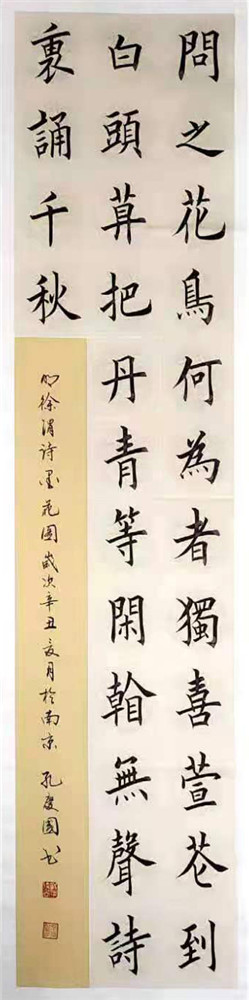 問之花鳥何為者獨喜萱花到
白頭莫把丹青等閑看無聲詩
裏誦千秋
徐渭诗墨花图歲次辛丑夏月於南京 孔國书